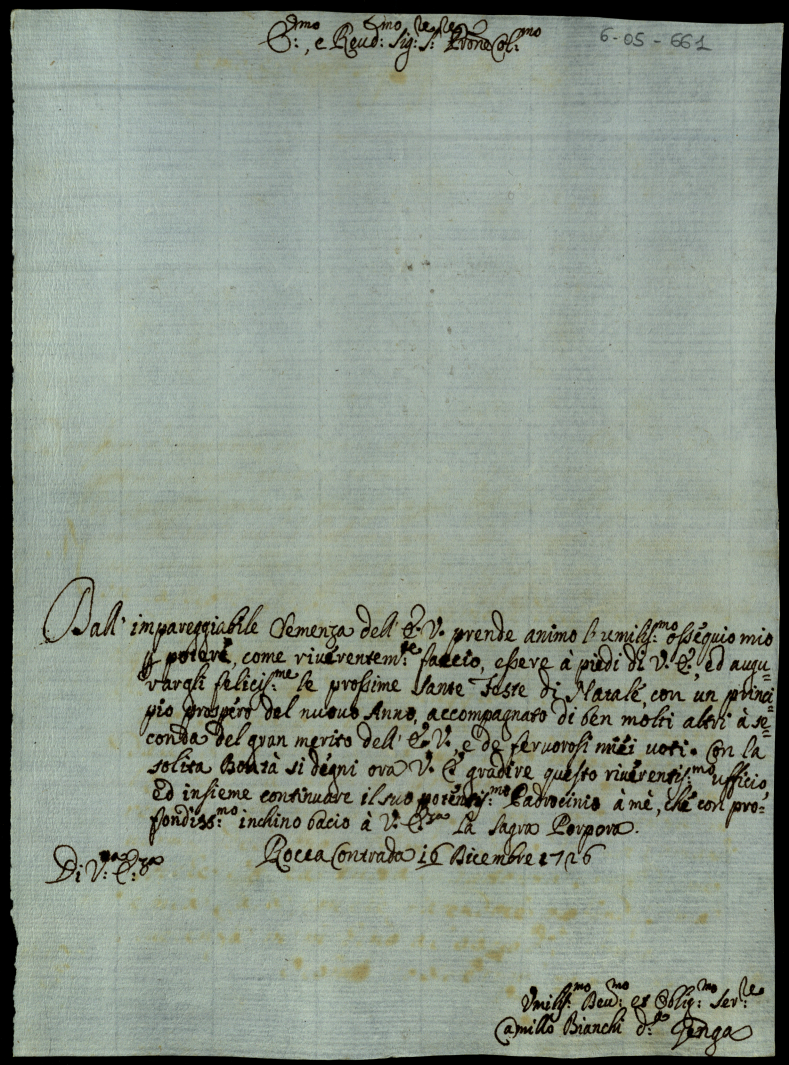 E:^dmo, e Reud:^smo Sig:^re S:^re Prone Col:^mo
6-05-661
Dall' impareggiabile Clemenza dell' E. V. prende animo l' umiliss:^mo ossequio mio
p potere, come riverentem:^te faccio, essere à piedi di V. E., ed augu=
rargli feliciss:^me le prossime Sante Feste di Natale, con un princi=
pio prospéro del nuouo Anno, accompagnato di ben molti altri à se=
conda del gran merito dell' E. V., e de feruorosi miéi uoti. Con la
solita Bontà si dégni ora V. E. gradire questo riuérentiss:^mo ufficio,
ed insieme continuare il suo poténtiss:^mo Padrocinio à mé, ché con pro=
fondiss:^mo inchino bacio à V. E:^za La Sagra Porpora.
Di V:^ra E:^za
Rocca Contrada 16 Dicembre 1726
Umiliss:^mo Deu:^mo et Oblig:^mo Ser:^re
Camillo Bianchi d:^a Genga